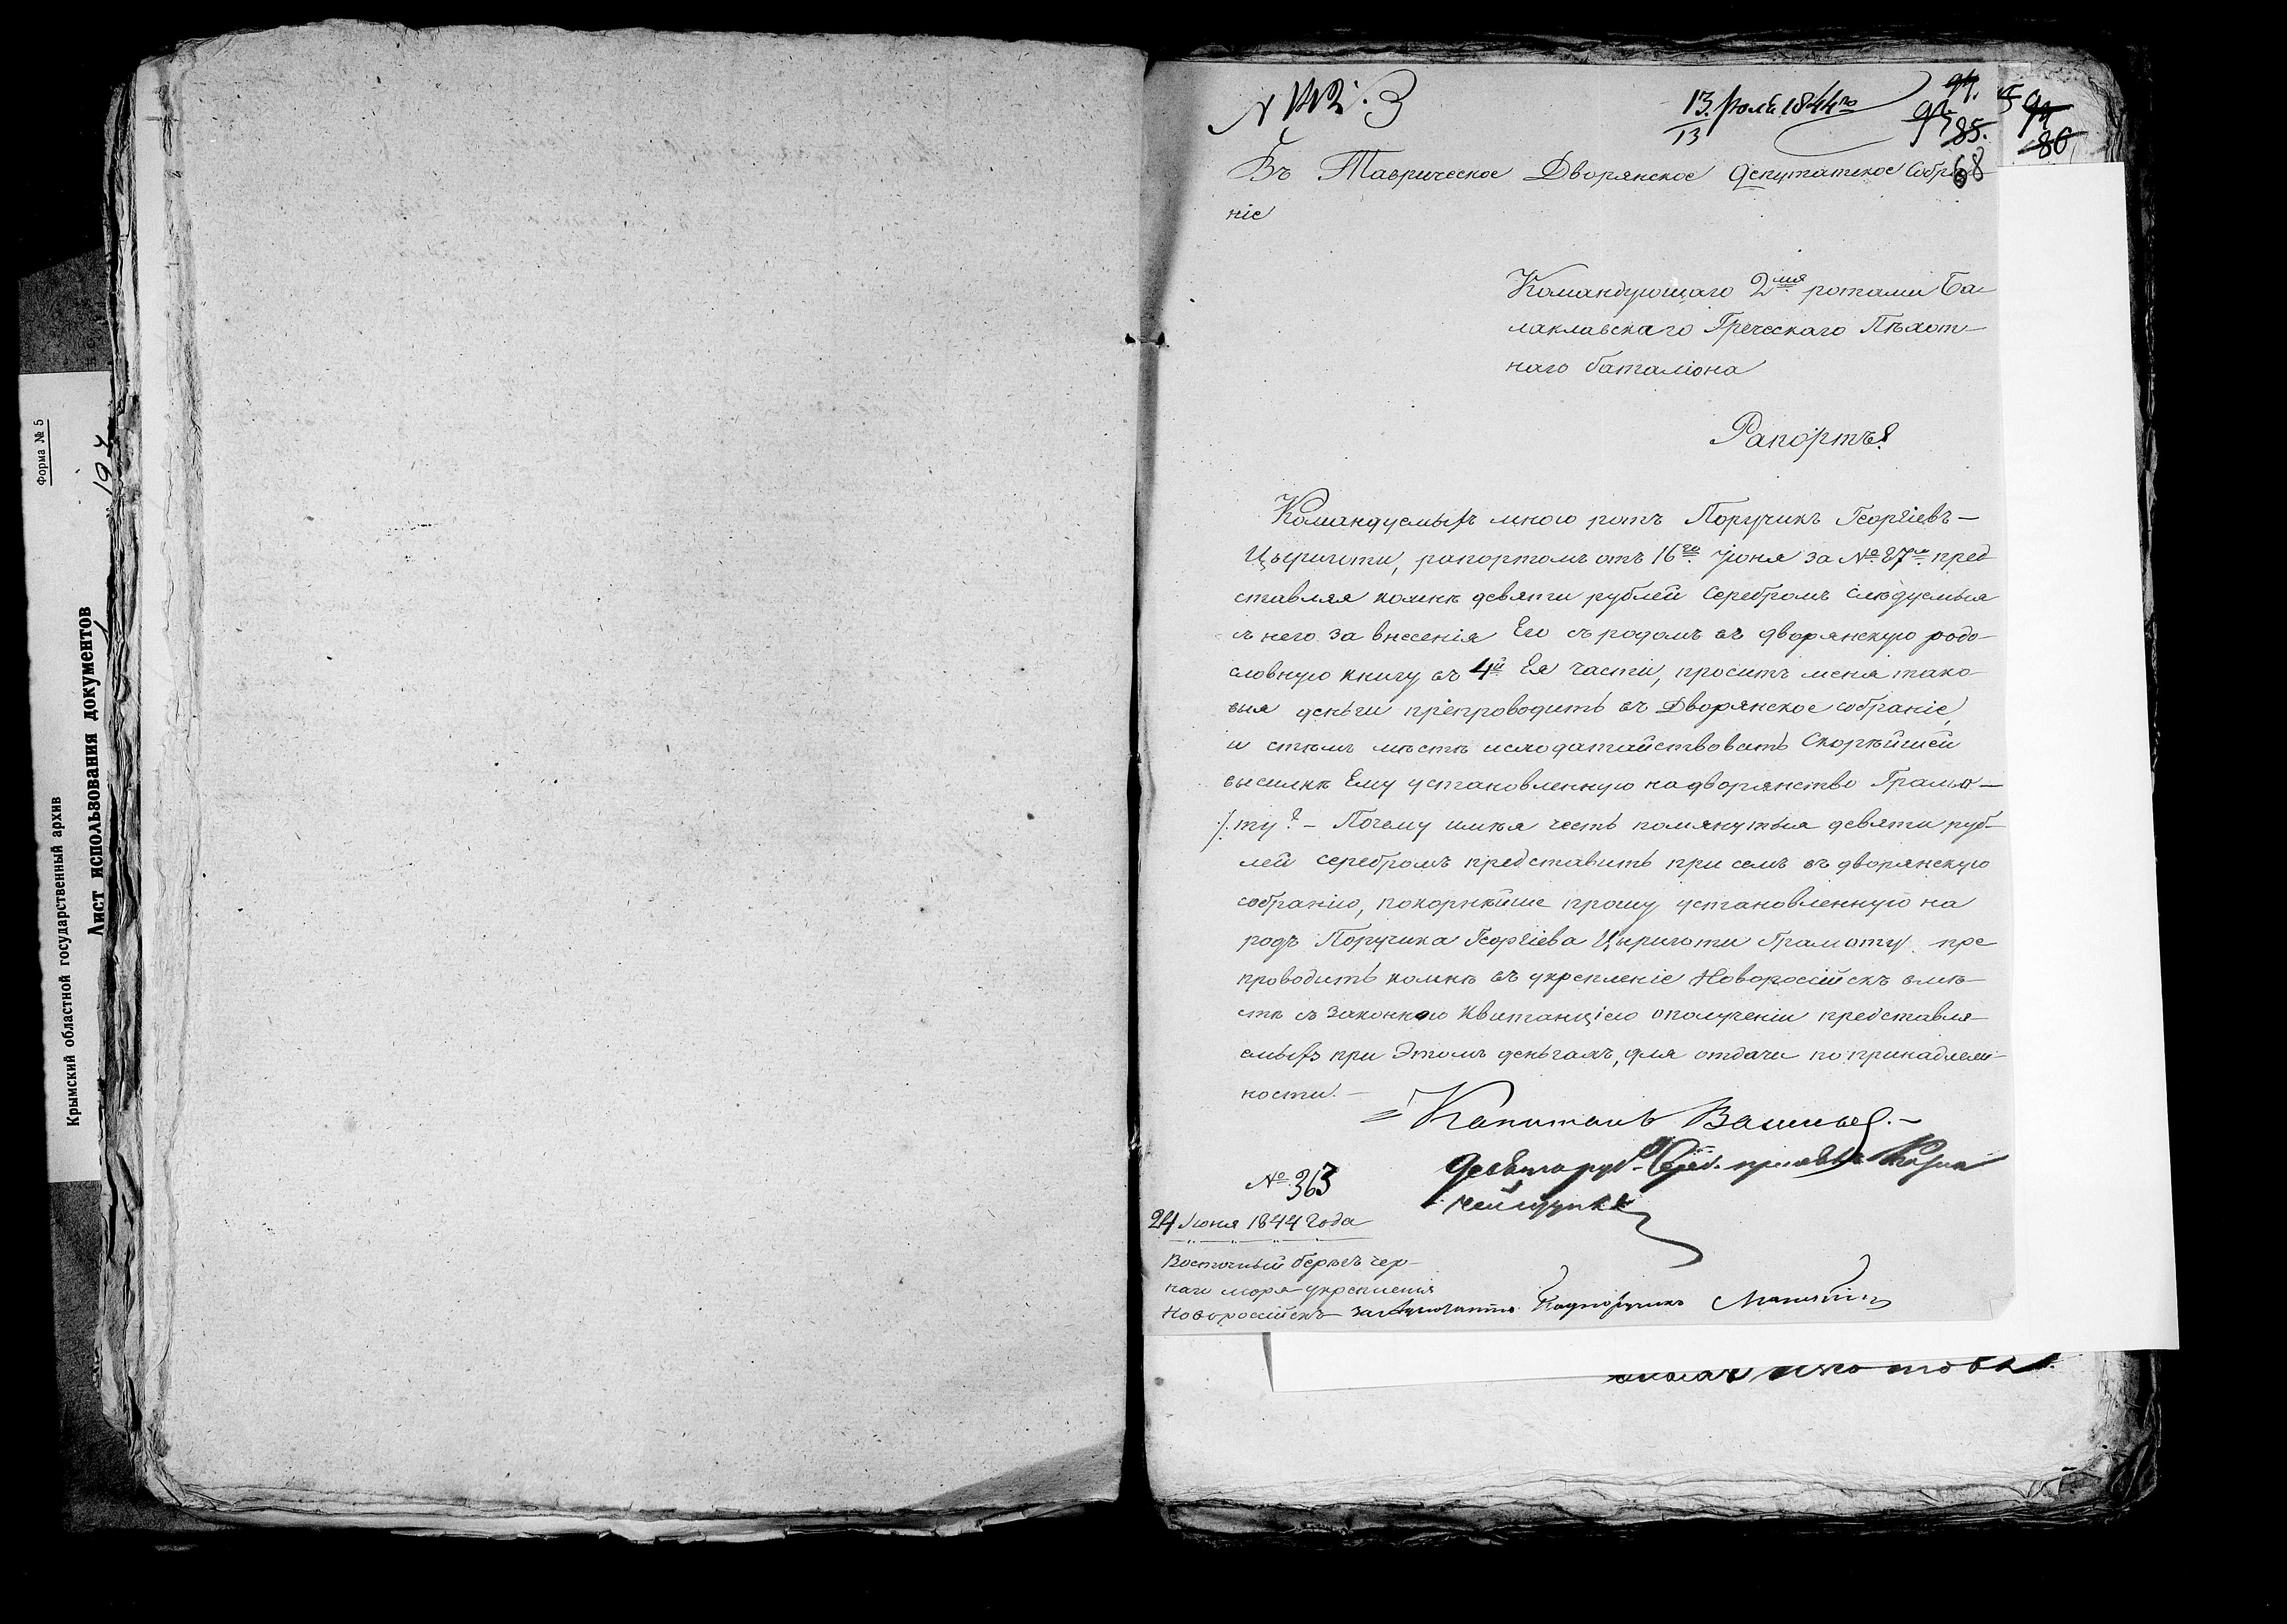 Форма № 5
Крымский областной государственный архив
Лист использования документов
13 Юля 1844го
13
94.
92
85.
68
86
Въ Таврическое Дворянское Депутатское Собра-
ніе
Командующаго 2мя ротами Ба-
лаклавскаго Греческаго Пѣхот-
наго баталіона
Рапортъ
Командуемыхъ мною ротъ Поручикъ Георгіевъ-
Цыриготи, рапортомъ отъ 16го Іюня за № 87м пред
ставляя комнѣ девяти рублей Серебромъ Слѣдуемыя
съ него за внесенія Его съ родомъ въ дворянскую родо-
словную книгу въ 4й Ея части, проситъ меня тако-
выя деньги препроводить въ Дворянское собраніе,
и стѣмъ мѣстѣ исходатайствовать Скорѣйшей
высилкѣ Ему установленную надворянство Грамо-
ту. - Почему имѣя честь помянутыя девяти руб-
лей серебромъ представить при семъ въ дворянскую
собранію, покорнѣйше прошу установленную на
родъ Поручика Георгіева Цыриготи Грамоту пре
проводить комнѣ въ укрепленіе Новоросійскъ вмѣ-
стѣ съ Законною Квитанціею ополученіи представля-
емыхъ при Этомъ деньгахъ, для отдачи по принадлеж-
ности. -
Капитанъ
№ 363
24 Іюня 1844 Года
Восточный берегъ чер-
наго моря укрепленія
Новоросійскъ
Подпоручикъ